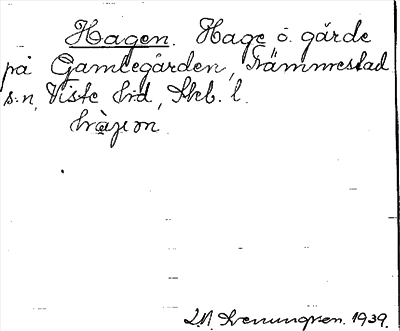 Hagen. Hage o. gärde
på Gamlegården, Främmestad
s:n, Viste hd, Skb. l.
hràjɜn
Svenungsen. 1939.